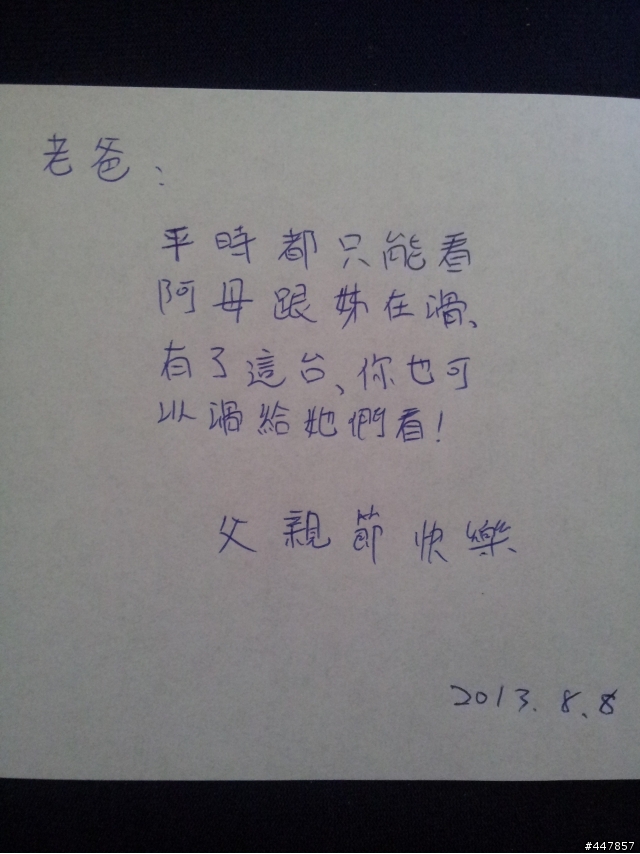 老爸:
平時都只能看
阿母跟姊在滑、
有了這台、你也可
以滑給她們看!
父親節快樂
2013.8.8
#447857